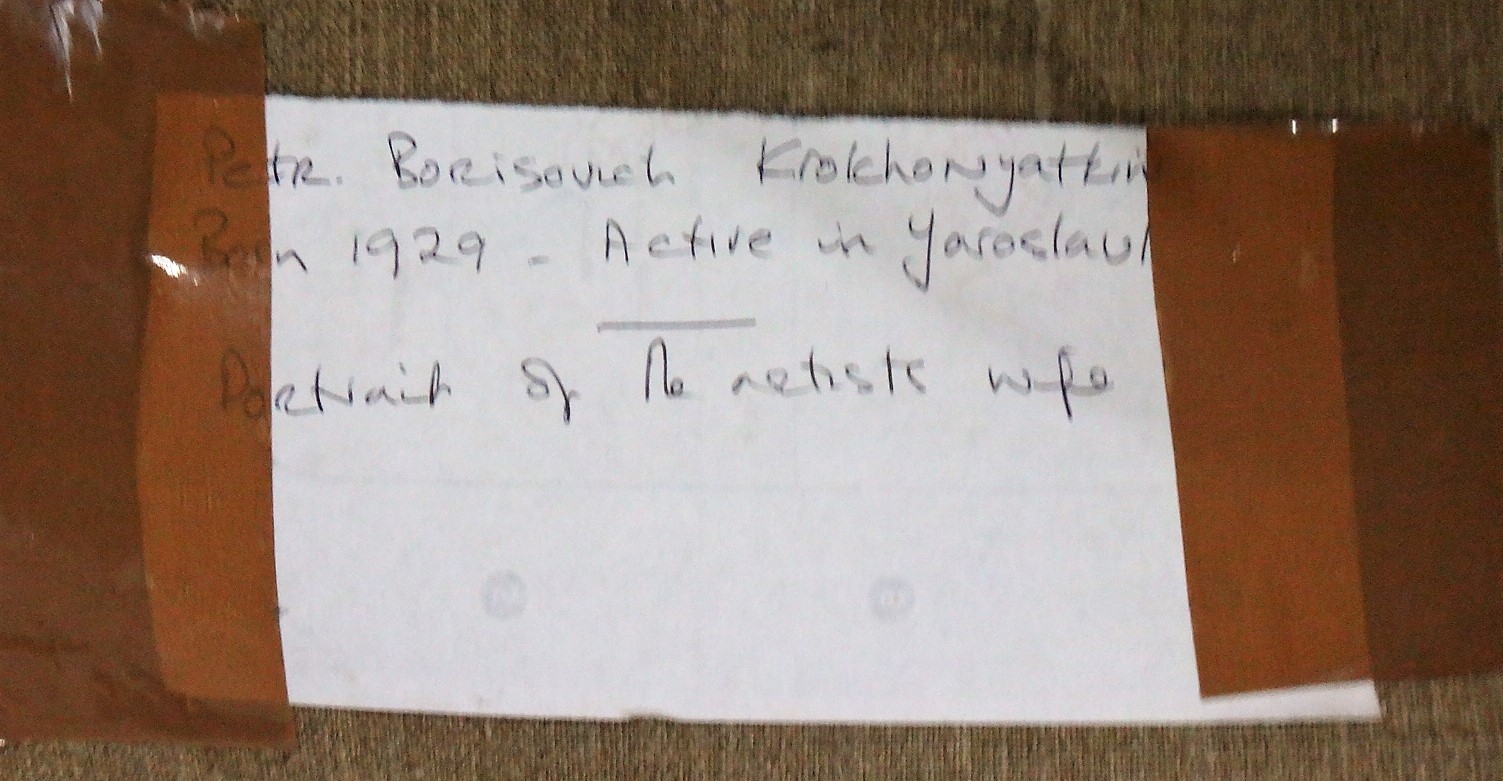 Petr. Borisovich Krokhonyatkin
Born 1929 - Active in Yaroslavl
Portrait of the artists wife